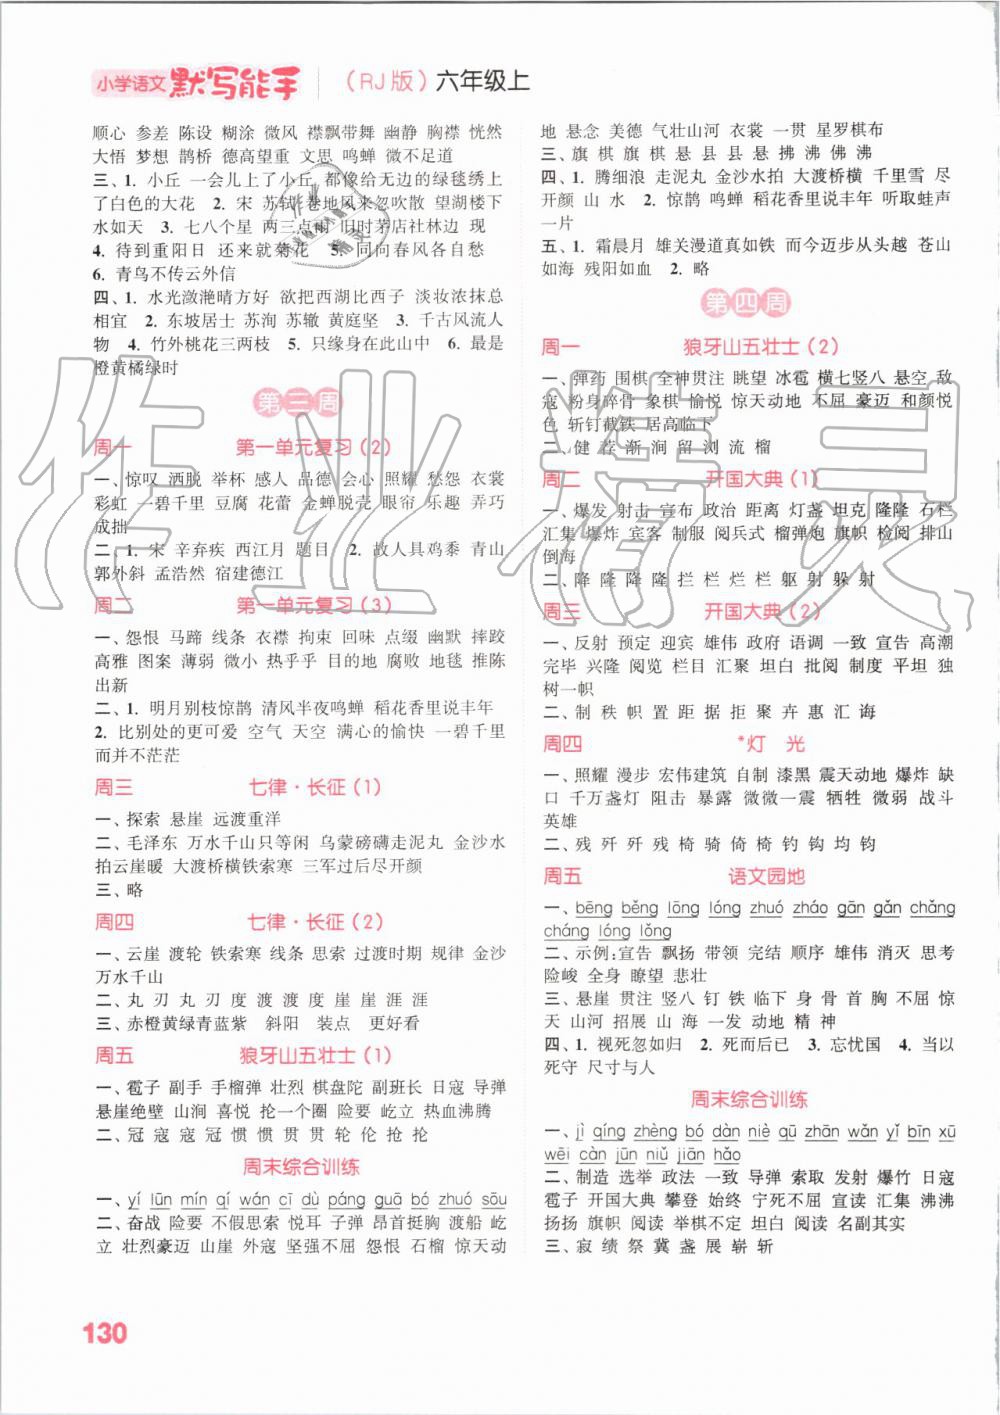 小学语文 默写能手 （RJ版）六年级上
顺心 参差 陈设 糊涂 微风 襟飘带舞 幽静 胸襟 恍然
大悟 梦想 鹊桥 德高望重 文思 鸣蝉 微不足道
三、1. 小丘 一会儿上了小丘 都像给无边的绿毯绣上
了白色的大花 2. 宋 苏轼 卷地风来忽吹散 望湖楼下
水如天 3. 七八个星 两三点雨 旧时茅店社林边 现
4. 待到重阳日 还来就菊花 5. 同向春风各自愁
6. 青鸟不传云外信
四、1. 水光潋滟晴方好 欲把西湖比西子 淡妆浓抹总
相宜 2. 东坡居士 苏洵 苏辙 黄庭坚 3. 千古风流人
物 4. 竹外桃花三两枝 5. 只缘身在此山中 6. 最是
橙黄橘绿时
第三周
周一 第一单元复习（2）
一、惊叹 洒脱 举杯 感人 品德 会心 照耀 愁怨 衣裳
彩虹 一碧千里 豆腐 花蕾 金蝉脱壳 眼帘 乐趣 弄巧
成拙
二、1. 宋 辛弃疾 西江月 题目 2. 故人具鸡黍 青山
郭外斜 孟浩然 宿建德江
周二 第一单元复习（3）
一、怨恨 马蹄 线条 衣襟 拘束 回味 点缀 幽默 摔跤
高雅 图案 薄弱 微小 热乎乎 目的地 腐败 地毯 推陈
出新
二、1. 明月别枝惊鹊 清风半夜鸣蝉 稻花香里说丰年
2. 比别处的更可爱 空气 天空 满心的愉快 一碧千里
而并不茫茫
周三 七律·长征（1）
一、探索 悬崖 远渡重洋
二、毛泽东 万水千山只等闲 乌蒙磅礴走泥丸 金沙水
拍云崖暖 大渡桥横铁索寒 三军过后尽开颜
三、略
周四 七律·长征（2）
一、云崖 渡轮 铁索寒 线条 思索 过渡时期 规律 金沙
万水千山
二、丸 刃 丸 刃 度 渡 渡 度 崖 崖 涯 涯
三、赤橙黄绿青蓝紫 斜阳 装点 更好看
周五 狼牙山五壮士（1）
一、雹子 副手 手榴弹 壮烈 棋盘陀 副班长 日寇 导弹
悬崖绝壁 山涧 喜悦 抡一个圈 险要 屹立 热血沸腾
二、冠 寇 寇 冠 惯 惯 贯 贯 轮 伦 抢 抡
周末综合训练
一、yí lǜn mín qí wán cī dù páng guā bó zhuó sōu
二、奋战 险要 不假思索 悦耳 子弹 昂首挺胸 渡船 屹
立 壮烈豪迈 山崖 外寇 坚强不屈 怨恨 石榴 惊天动
地 悬念 美德 气壮山河 衣裳 一贯 星罗棋布
三、旗 棋 旗 棋 悬 县 县 悬 拂 沸 佛 沸
四、1. 腾细浪 走泥丸 金沙水拍 大渡桥横 千里雪 尽
开颜 山 水 2. 惊鹊 鸣蝉 稻花香里说丰年 听取蛙声
一片
五、1. 霜晨月 雄关漫道真如铁 而今迈步从头越 苍山
如海 残阳如血 2. 略
第四周
周一 狼牙山五壮士（2）
一、弹药 围棋 全神贯注 眺望 冰雹 横七竖八 悬空 敌
寇 粉身碎骨 象棋 愉悦 惊天动地 不屈 豪迈 和颜悦
色 斩钉截铁 居高临下
二、健 荐 渐 涧 留 浏 流 榴
周二 开国大典（1）
一、爆发 射击 宣布 政治 距离 灯盏 坦克 隆隆 石栏
汇集 爆炸 宾客 制服 阅兵式 榴弹炮 旗帜 检阅 排山
倒海
二、降 隆 降 隆 拦 栏 拦 栏 躯 射 躲 射
周三 开国大典（2）
一、反射 预定 迎宾 雄伟 政府 语调 一致 宣告 高潮
完毕 兴隆 阅览 栏目 汇聚 坦白 批阅 制度 平坦 独
树一帜
二、制 秩 帜 置 距 据 拒 聚 卉 惠 汇 诲
周四 *灯 光
一、照耀 漫步 宏伟建筑 自制 漆黑 震天动地 爆炸 缺
口 千万盏灯 阻击 暴露 微微一震 牺牲 微弱 战斗
英雄
二、残 歼 歼 残 椅 骑 倚 椅 钓 钩 均 钧
周五 语文园地
一、bēng běng lōng lóng zhuó zháo gān gǎn chǎng
cháng lóng lǒng
二、示例：宣告 飘扬 带领 完结 顺序 雄伟 消灭 思考
险峻 全身 瞭望 悲壮
三、悬崖 贯注 竖八 钉 铁 临下 身 骨 首 胸 不屈 惊
天 山河 招展 山 海 一发 动地 精 神
四、1. 视死忽如归 2. 死而后已 3. 忘忧国 4. 当以
死守 尺寸与人
周末综合训练
一、jì qíng zhèng bó dàn niè qū zhān wǎn yǐ bīn xū
wēi càn jūn niǔ jiān hǎo
二、制造 选举 政法 一致 导弹 索取 发射 爆竹 日寇
雹子 开国大典 攀登 始终 宁死不屈 宣读 汇集 沸沸
扬扬 旗帜 阅读 举棋不定 坦白 阅读 名副其实
三、寂 绩 祭 冀 盏 展 崭 斩
130
作业精灵